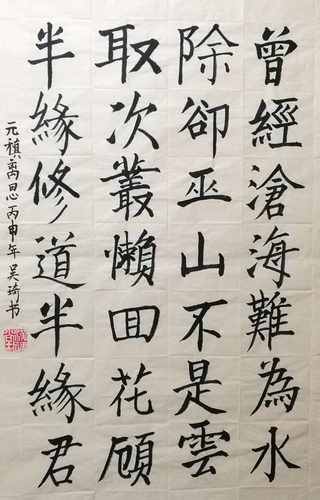 曾經滄海難為水
除卻巫山不是雲
取次叢懶回花顧
半緣修道半緣君
元稹离思丙申年吴琦书